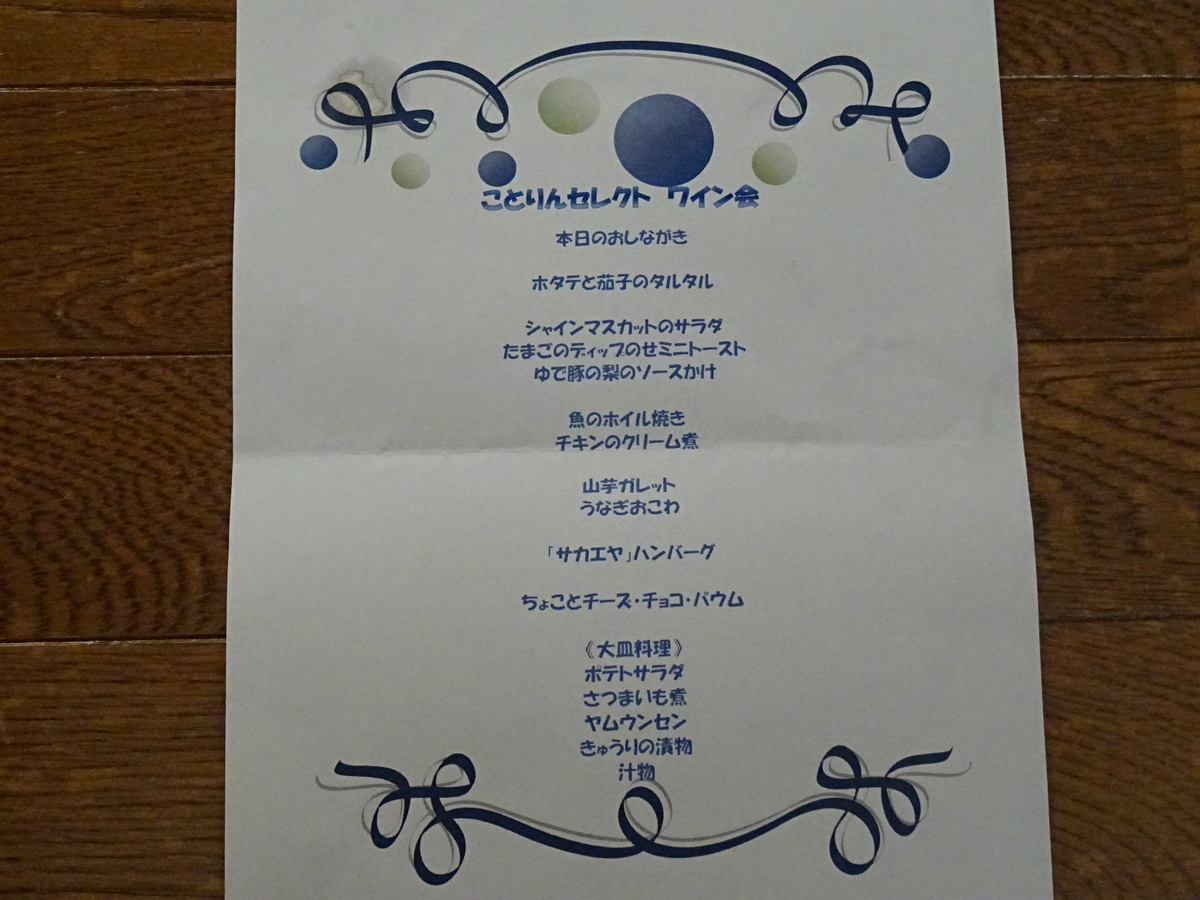 ことりんセレクト ワイン会
本日のおしながき
ホタテと茄子のタルタル
シャインマスカットのサラダ
たまごのディップのせミニトースト
ゆで豚の梨のソースかけ
魚のホイル焼き
チキンのクリーム煮
山芋ガレット
うなぎおこわ
「サカエヤ」ハンバーグ
ちょことチーズ・チョコ・バウム
《大皿料理》
ポテトサラダ
さつまいも煮
ヤムウンセン
きゅうりの漬物
汁物